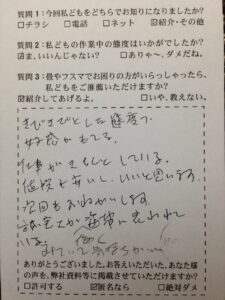 質問1:今回私どもをどちらでお知りになりましたか?
□チラシ □電話 □ネット ☑紹介・その他
質問2:私どもの作業中の態度はいかがでしたか?
☑ま、いいんじゃない? □ありゃ〜、ダメだね。
質問3:畳やフスマでお困りの方がいらっしゃったら、
私どもをご推薦いただけますか?
☑紹介してあげるよ。 □いや、教えない。
きびきびとした態度で
好感がもてる。
仕事がきちんとしている。
値段も安いし、いいと思います。
次回もおねがいします。
誠実さが 表われて
いる。
みていて気持ちがいい
ありがとうございました。お答えいただいた、あなた様
の声を、弊社資料等に掲載させていただけますか?
□許可する ☑匿名なら □絶対ダメ